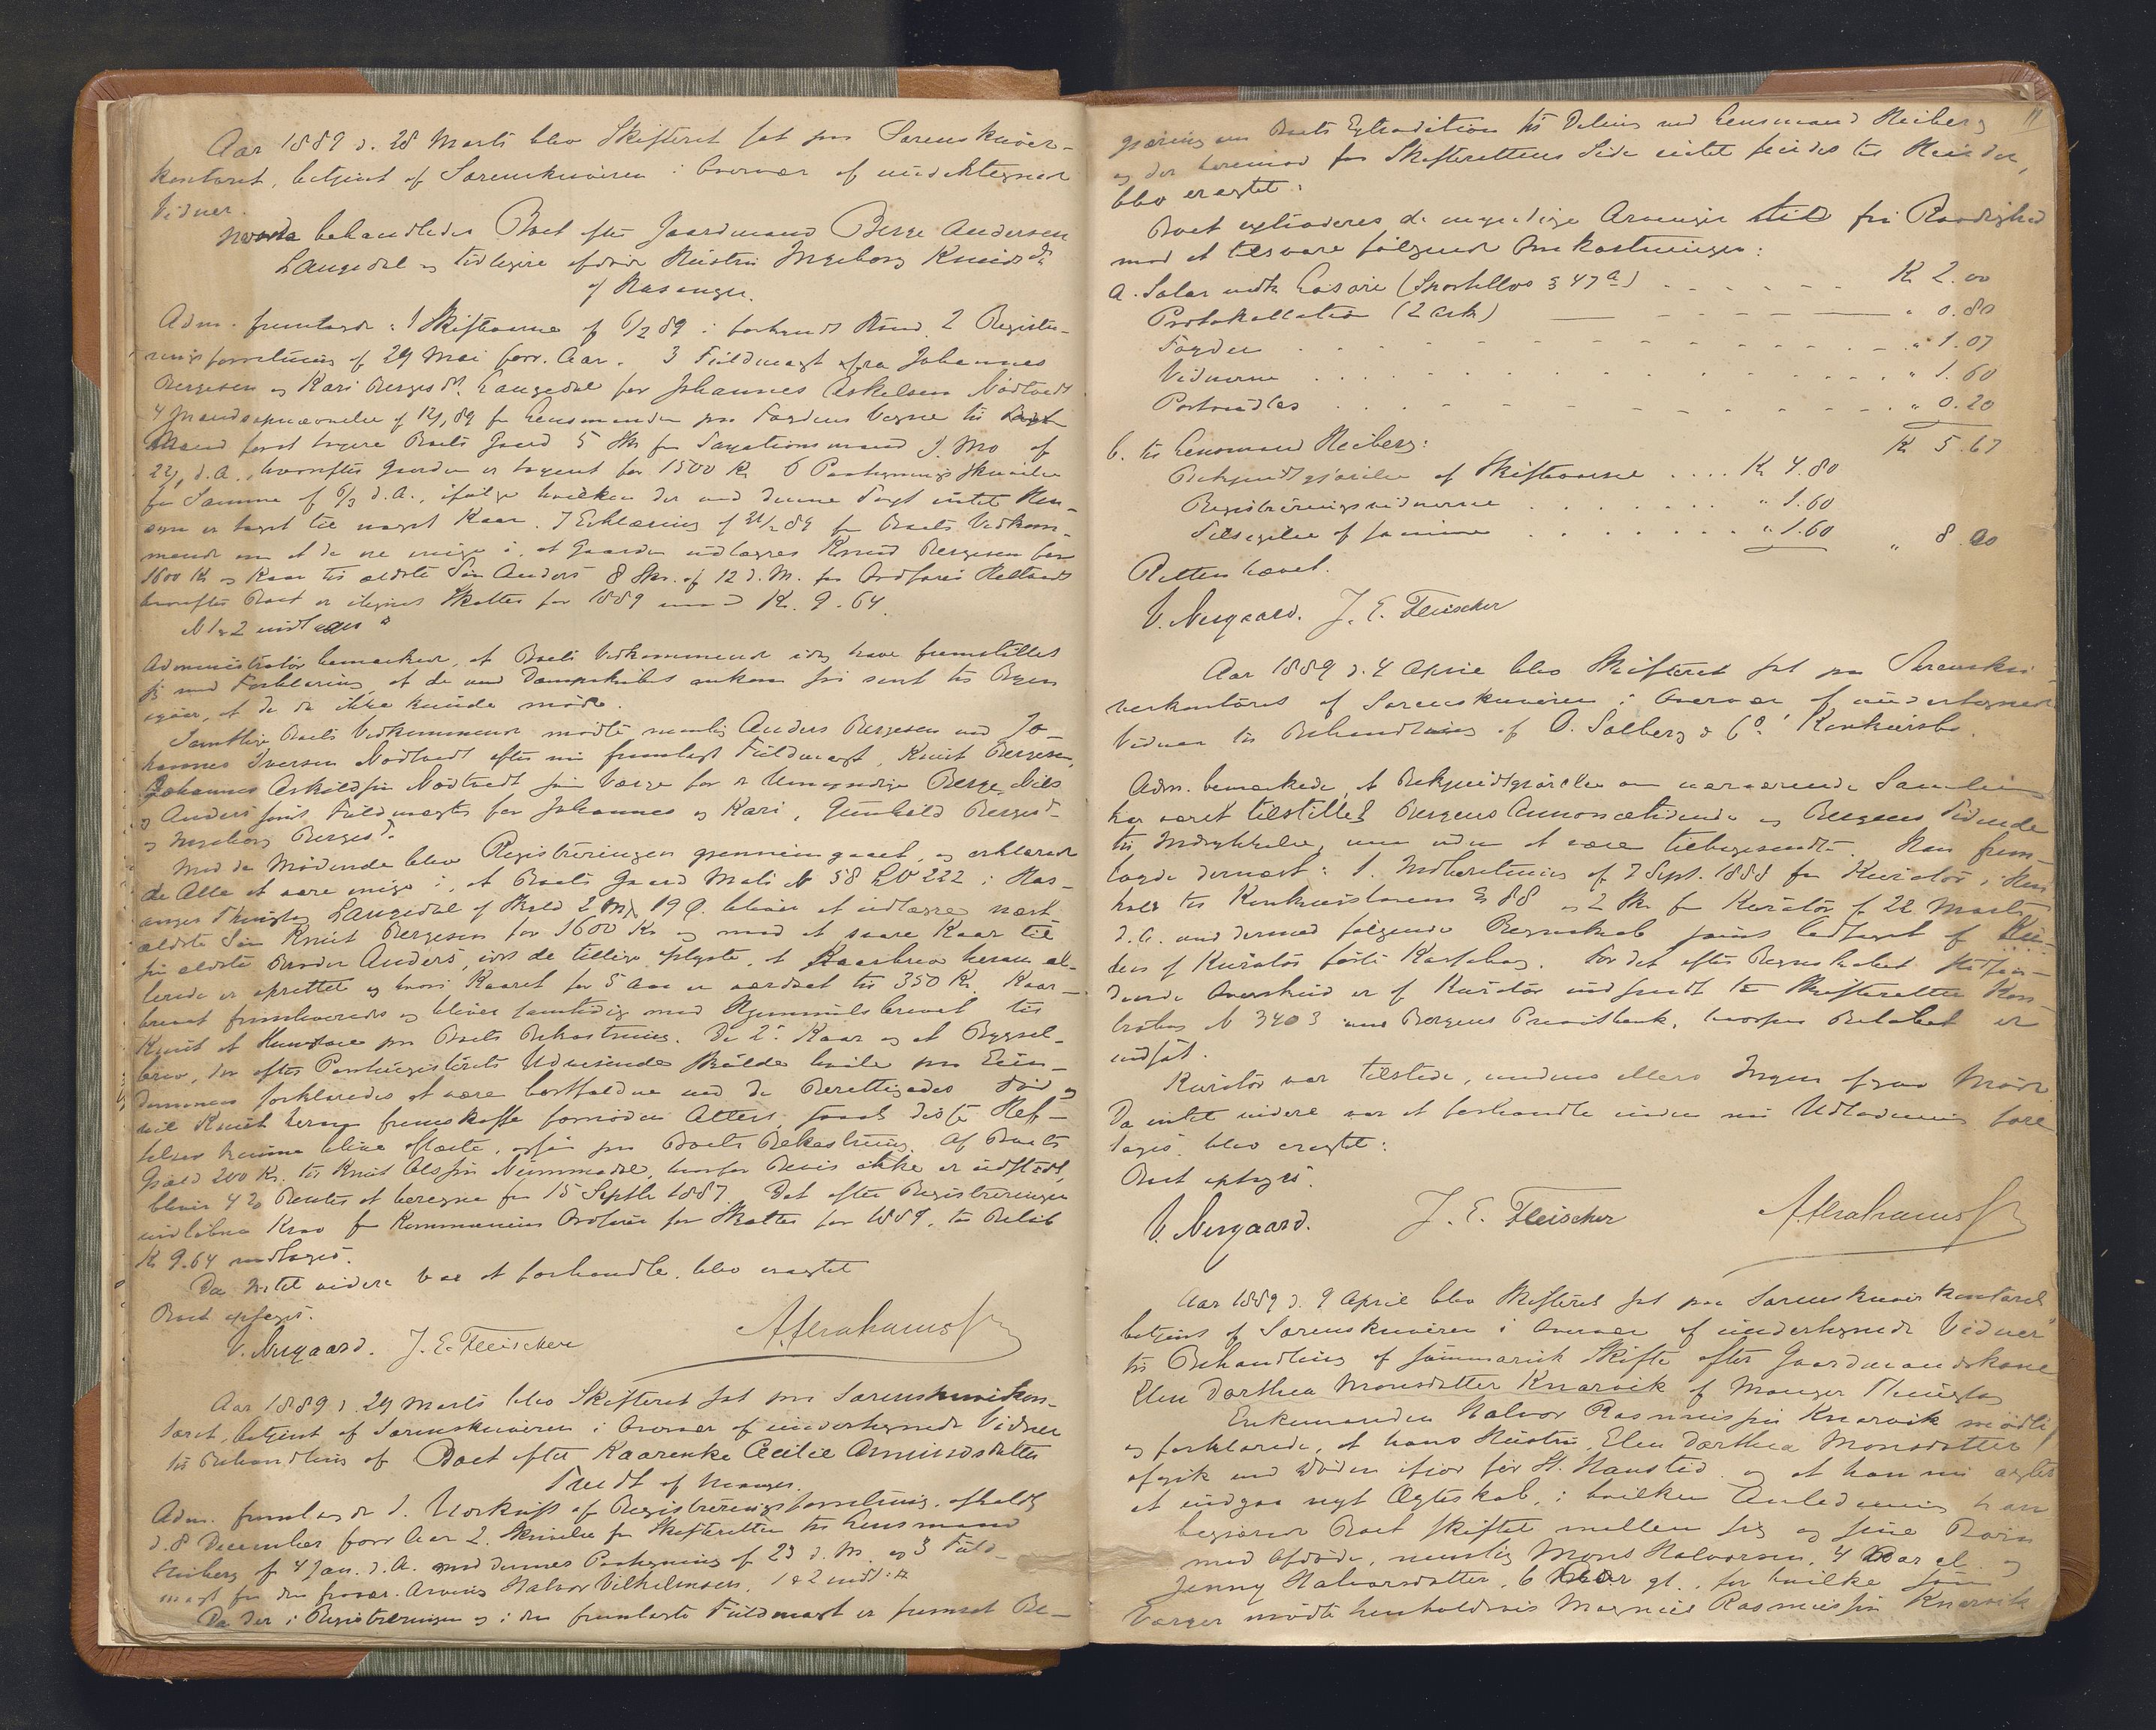 Aar 1889 d. 28 Marts blev Skifteret sat paa Sorenskriver-
kontoret, betjent af Sorenskriveren i Overvær af undertegnede
Vidner.
behandledes Boet efter Gaardmand Berge Andersen
Langedal og tidligere afdøde Hustru Ingeborg Knudsdtr
af Hosanger.
Adm. fremlagde: 1 Skifteserne af 6/2 89 i forkyndt Stand. 2 Registre-
ringsforretning af 29 Mai forr. Aar. 3 Fuldmagt fra Johannes
Bergesen og Kari Bergesdtr. Langedal for Johannes Askelsen Nødtvedt
4 for Lensmanden paa Fogdens Vegne til
Mænd forat taxere Boets Gaard 5 Skr. fra Taxationsmænd J. Mo af
d. A., hvorefter Gaarden er taxeret for 1500 Kr. 6 Paategningsskrivelse
fra Samme af 6/3 d. A., ifølge hvilken der ved denne Taxt intet Hen-
syn er taget til noget Kaar. 7 Erklæring af fra Boets Vedkom-
mende om at de ere enige i, at Gaarden udlægges Knud Bergesen for
1600 Kr og Kaar til ældste Søn Anders 8 Skr. af 12 d. M. fra Ordfører Helland
hvorefter Boet er ilignet Skatter for 1889 med Kr. 9.64
N 1 & 2 indtages
Administrator bemærkede, at Boets Vedkommende idag have fremstillet
sig med Forklaring, at de med Dampskibet ankom for sent til Byen
igaar, at de da ikke kunde møde.
Samtlige Boets Vedkommende mødte nemlig Anders Bergesen ved Jo-
hannes Iversen Nødtvedt efter nu fremlagt Fuldmagt, Knut Bergesen,
Johannes Askildsen Nødtvedt som Værge for de Umyndige Berge, Nils
og Anders samt Fuldmægtig for Johannes og Kari, Gunhild Bergesd.
og Ingeborg Bergesd.
Med de Mødende blev Registreringen gjennemgaaet, og erklærede
de Alle at være enige i, at Boets Gaard Mats N 58 LN 222 i Hos-
anger Thinglag Langedal af Skyld 2 19 bliver at udlægge næst
ældste Søn Knut Bergesen for 1600 Kr og mod at svare Kaar til
sin ældste Broder Anders, idet de tillige oplyste, at Kaarbrev herom al-
lerede er oprettet og hvori Kaaret for 5 Aar er værdsat til 350 Kr. Kaar-
brevet fremleveredes og bliver samtidig med Hjemmelsbrevet til
Knut at thinglæse paa Boets Bekostning. De 2de Kaar og et Bygsel-
brev, der efter Panteregisterets Udvisende skulde hvile paa Eien-
dommen forklaredes at være bortfaldne ved de Berettigedes Død og
vil Knut herom fremskaffe fornøden Attest, forat disse Hef-
telser kunne blive aflæste, ogsaa paa Boets Bekostning. Af Boets
Gjæld 200 Kr. til Knut Olssøn Njummedal, hvorfor Bevis ikke er udstedt,
bliver 4% Renter at beregne fra 15 Septbr 1887. Det efter Registreringen
indløbne Krav fra Kommunens Ordfører for Skatter for 1889, til Beløb
Kr 9.64 vedtages.
Da Intet videre var at forhandle, blev eragtet
Boet optages.
V. Nergaard. J. E. Fleischer A. Abrahamsen
Aar 1889 d. 29 Marts blev Skifteret sat paa Sorenskriverkon-
toret, betjent af Sorenskriveren i Overvær af undertegnede Vidner
til Behandling af Boet efter Kaarenke Cecilie Amundsdatter
Tvedt af Manger.
Adm. fremlagde 1. Udskrift af Registreringsforretning, afholdt
d. 8 December forr. Aar 2. Skrivelse fra Skifteretten til Lensmand
Heiberg af 4 Jan. d. A. med dennes Paategning af 23 d. M. og 3 Fuld-
magt fra den fravær. Arving Halvor Vilhelmsen. 1 & 2 indt:
Da der i Registreringen og i den fremlagte Fuldmagt er fremsat Be-
11
gjæring om Boets Extradition til Deling ved Lensmand Heiberg
og der herimod fra Skifterettens Side intet findes til Hinder,
blev eragtet:
Boet extraderes de myndige Arvinger til fri Raadighed
mod at tilsvare følgende Omkostninger:
a. Salar Lasøre (Sportellov § 47 a) Kr 2.00
Protokollation (2 Ark) " 0.80
Fogden " 1.07
Vidnerne " 1.60
Portoudlæg " 0.20
Kr 5.67
b. til Lensmand Heiberg:
Bekjendtgjørelse af Skifteserne Kr 4.80
Registreringsvidnerne " 1.60
Tilsigelse af samme " 1.60
" 8.00
Retten hævet.
V. Nergaard. J. E. Fleischer
Aar 1889 d. 4 April blev Skifteret sat paa Sorenskri-
verkontoret af Sorenskriveren i Overvær af undertegnede
Vidner til Behandling af O. Solberg & Co.' Konkursbo.
Adm. bemærkede, at Bekjendtgjørelse om nærværende Samling
har været tilstillet Bergens Annoncetidende og Bergens Tidende
til Indrykkelse, men uden at være tilbagesendte. Han frem-
lagde dernæst: 1. Indberetning af 7 Sept. 1888 fra Kurator i Hen-
hold til Konkurslovens § 88 og 2 Skr. fra Kurator af 22 Marts
d. A. med dermed følgende Regnskab samt ledsaget af
den af Kurator førte Kassebog. For det efter Regnskabet stedfin-
dende Overskud er af Kurator indsendt til Skifteretten Kon-
trabog N 3403 med Bergens Privatbank, hvorpaa Beløbet er
indsat.
Kurator var tilstede, medens ellers Ingen gav Møde.
Da intet videre var at forhandle inden nu Udlodning fore-
tages, blev eragtet:
Boet optages.
V. Nergaard. J. E. Fleischer A. Abrahamsen
Aar 1889 d. 9 April blev Skifteret sat paa Sorenskriverkontoret
betjent af Sorenskriveren i Overvær af undertegnede Vidner
til Behandling af summarisk Skifte efter Gaardmandskone
Elen Dorthea Monsdatter Knarvik af Manger Thinglag
Enkemanden Halvor Rasmussøn Knarvik mødte
og forklarede, at hans Hustru, Elen Dorthea Monsdatter
afgik ved Døden ifjor før St. Hanstid, og at han nu agter
at indgaa nyt Ægteskab, i hvilken Anledning han
begjærede Boet skiftet mellem sig og sine Børn
med Afdøde, nemlig Mons Halvorsen, 4 Aar gl. og
Jenny Halvorsdatter, 6 Aar gl., for hvilke som
Værger mødte henholdsvis Magnus Rasmussøn Knarvik